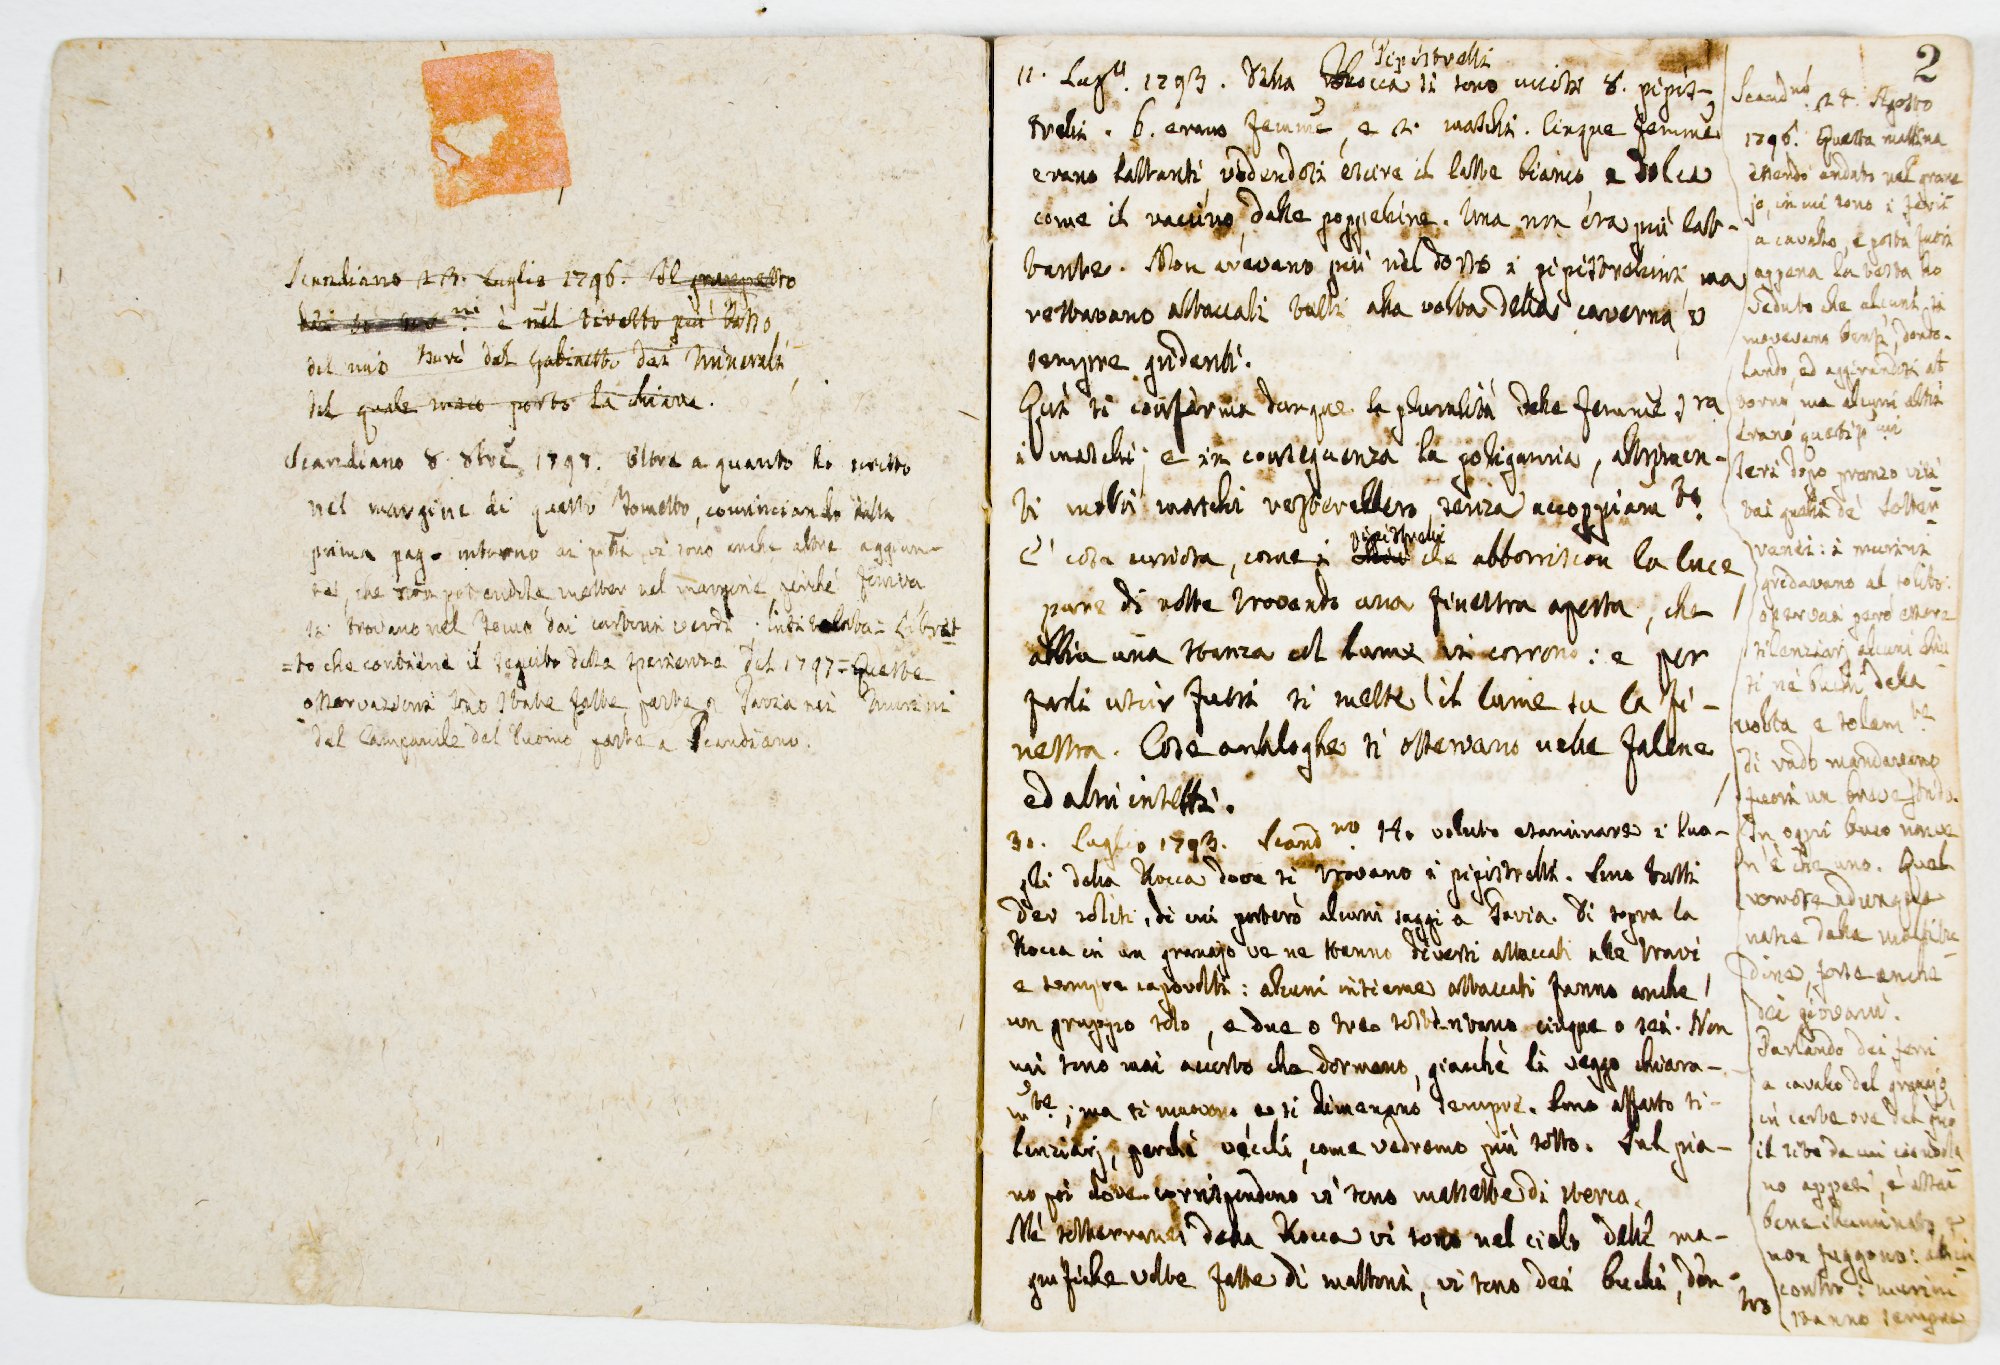 Scandiano 23. Luglio 1796. Il
è nel tiretto più basso
del mio Burò del Gabinetto dei Minerali,
del quale meco porto la chiave.
Scandiano 8. 8bre 1797. Oltre a quanto ho scritto
nel margine di questo tometto, cominciando dalla
prima pag. intorno ai vi sono anche altre aggiun-
te, che non potendole metter nel margine, perché
si trovano nel tomo dai cartoni verdi, intitolato = Libret-
=to che contiene il seguito delle sperienze del 1797 = Queste
osservazioni sono state fatte, parte a Pavia nei Murini
del Campanile del Duomo, parte a Scandiano.
2
Pipistrelli
11. Lugo. 1793. Nella Rocca si sono uccisi 8. pipis-
trelli. 6. erano femme, e 2. maschi. Cinque femme
erano lattanti, vedendosi escire il latte bianco, e dolce
come il vaccino, dalle poppelline. Una non era più lat-
tante. Non avevano più nel dosso i pipistrellini ma
restavano attaccati tutti alla volta della caverna, e
sempre gridenti.
Quì si conferma dunque la pluralità delle femme, ra
i maschi; e in conseguenza la poligamia, altrimen-
ti molti maschi resterebbero senza accoppiam.to
E' cosa curiosa, come i pipistrelli che abborriscon la luce
pure di notte trovando una finestra aperta, che
abbia una stanza col lume vi corrono: e per
farli uscir fuori si mette il lume su la fi-
nestra. Cose analoghe si osservano nelle falene
ed altri insetti.
31. Luglio 1793. Scand.no Ho voluto esaminare i luo-
ghi della Rocca dove si trovano i pipistrelli. Sono tutti
dei soliti, di cui porterò alcuni saggi a Pavia. Di sopra la
Rocca in un granajo ve ne stanno diversi attaccati alle travi
e sempre capovolti: alcuni insieme attaccati fanno anche
un gruppo solo, e due o tre cinque o sei. Non
mi sono mai accorto che dormano, giacché li veggo chiara-
m.te; ma si muovono e si dimenano sempre. Sono affatto si-
lenziarj, perché vecchi, come vedremo più sotto. Sul pia-
no poi dove corrispondono vi sono massette di sterco.
Nè sotterranei della Rocca vi sono nel cielo delle ma-
gnifiche volte fatte di mattoni, vi sono dei buchi, den-
tro
Scand.no 24. Agosto
1796. Questa mattina
essendo andato nel grana
jo, in cui sono i ferri
a cavallo, e posta fuori
appena la testa ho
veduto che alcuni si
movevano bensì, dondo-
lando, ed aggirandosi at
torno, ma alcuni altri
erano
Ieri dopo pranzo visi
tai quelli de' sotter-
ranei: i murini
gridavano al solito:
osservai però essere
silenziarj alcuni chiu
si né buchi della
volta e solam.te
di rado mandavano
fuori un breve strido.
In ogni buco non ve
n'è che uno. Quel
romore adunque
nasce dalla moltitu-
dine, forse anche
dei giovani.
Parlando dei ferri
a cavallo del granajo,
in certe ore del
il sito da cui
no appesi, è assai
bene illuminato e
non fuggono:
contro i murini
stanno sempre